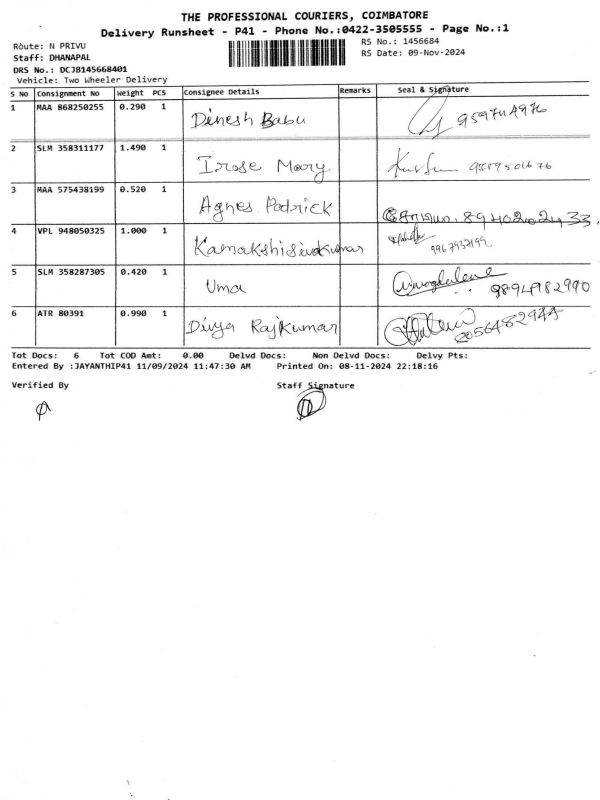 THE PROFESSIONAL COURIERS, COIMBATORE
Delivery Runsheet - P41 - Phone No.:0422-3505555 - Page No.:1
Route: N PRIVU RS No.: 1456684
Staff: DHANAPAL RS Date: 09-Nov-2024
DRS No.: DCJB145668401
Vehicle: Two Wheeler Delivery
S No Consignment No Weight PCS Consignee Details Remarks Seal & Signature
1 MAA 868250255 0.290 1 Dinesh Babu
2 SLM 358311177 1.490 1 Irose Mary 9889501676
3 MAA 575438199 0.520 1 Agnes Padrick 8940202433
4 VPL 948050325 1.000 1 Kamakshisivakumar 9967937199
5 SLM 358287305 0.420 1 Uma 9894982990
6 ATR 80391 0.990 1 Divya Rajkumar
Tot Docs: 6 Tot COD Amt: 0.00 Delvd Docs: Non Delvd Docs: Delvy Pts:
Entered By :JAYANTHIP41 11/09/2024 11:47:30 AM Printed On: 08-11-2024 22:18:16
Verified By Staff Signature